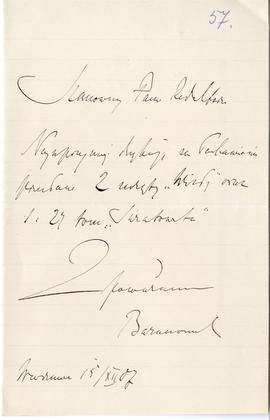 57.
Szanowny Panie Redaktorze
Najuprzejmiej dziękuję za
2 zeszyty „Wisły” oraz
1. 27 tom „Światowita”
Z poważaniem
Baranowski
Warszawa 15/XII 07